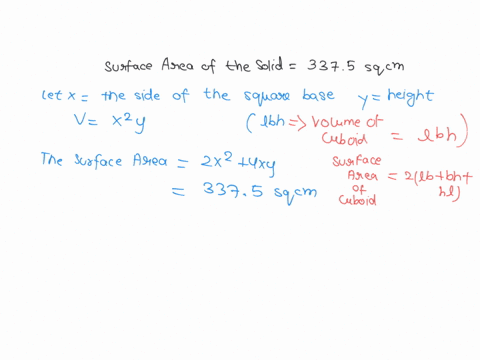 Surface Area of the Solid = 337.5 sqcm
Let x = the side of the square base y = height
V = x²y (lbh => Volume of Cuboid = lbh)
The Surface Area = 2x² + 4xy
= 337.5 sqcm
Surface Area of Cuboid = 2(lb+bh+hl)